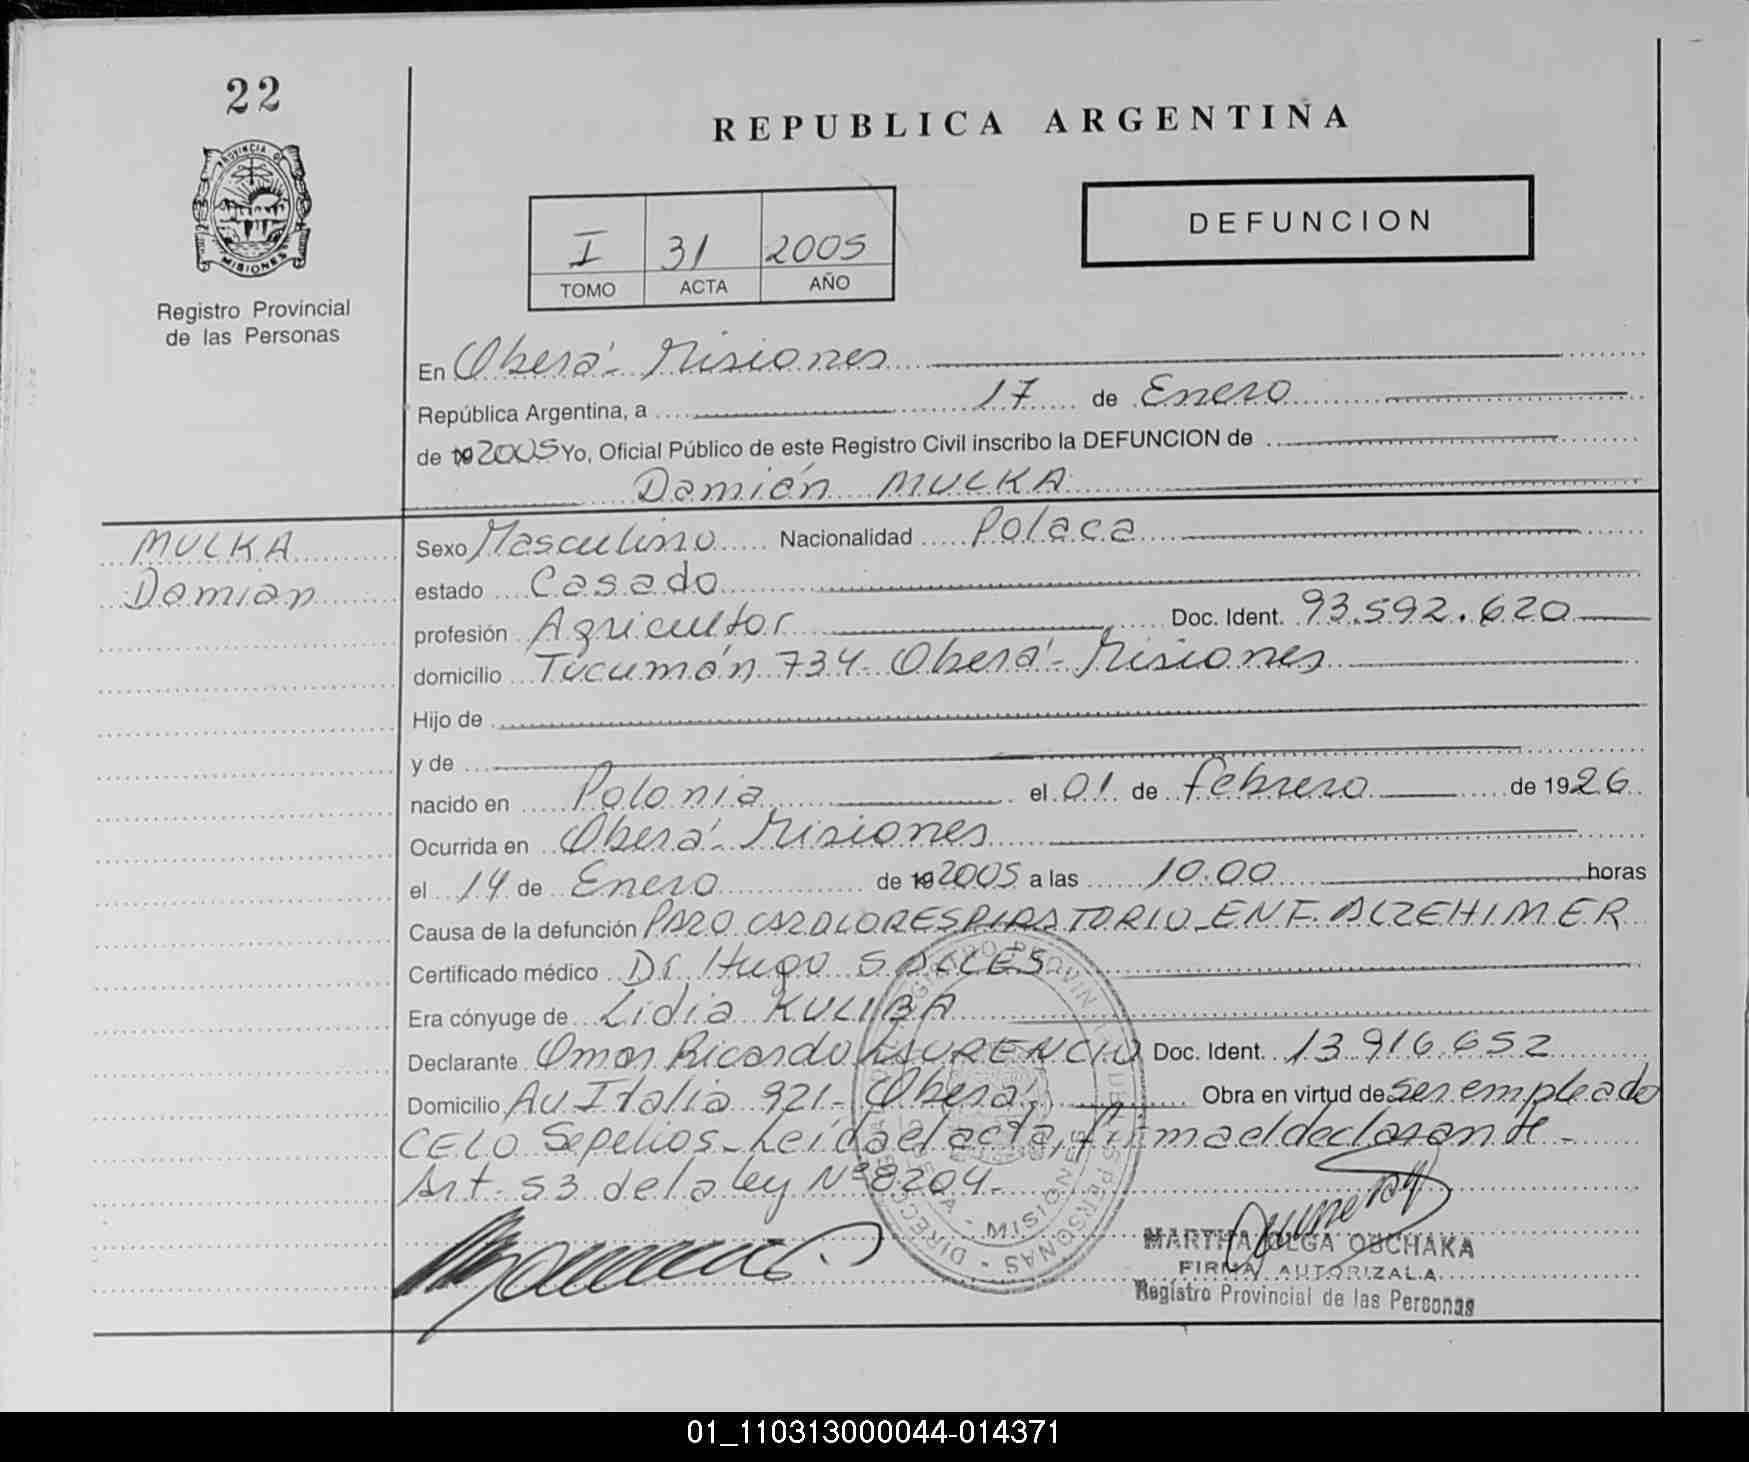 22
REPUBLICA ARGENTINA
PROVINCIA DE
MISIONES
Registro Provincial
de las Personas
I 31 2005
TOMO ACTA AÑO
DEFUNCION
En Oberá - Misiones
República Argentina, a 17 de Enero
de 19 2005 Yo, Oficial Público de este Registro Civil inscribo la DEFUNCION de
Damián MULKA
MULKA
Damián
Sexo Masculino Nacionalidad Polaca
estado Casado
profesión Agricultor Doc. Ident. 93.592.620
domicilio Tucumán 734 - Oberá - Misiones
Hijo de
y de
nacido en Polonia el 01 de febrero de 1926
Ocurrida en Oberá - Misiones
el 14 de Enero de 19 2005 a las 10.00 horas
Causa de la defunción PARO CARDIORESPIRATORIO - ENF. ALZEHIMER
Certificado médico Dr. Hugo SALLES
Era cónyuge de Lidia KULIBA
Declarante Omar Ricardo LAURENCIO Doc. Ident. 13.916.652
Domicilio Av Italia 921 - Oberá - Obra en virtud de ser empleado
CELO Sepelios - Leída el acta, firma el declarante -
Art. 53 de la ley Nº 8204 -
MISIONES
MARTHA OLGA OUCHAKA
FIRMA AUTORIZADA
Registro Provincial de las Personas
01_110313000044-014371